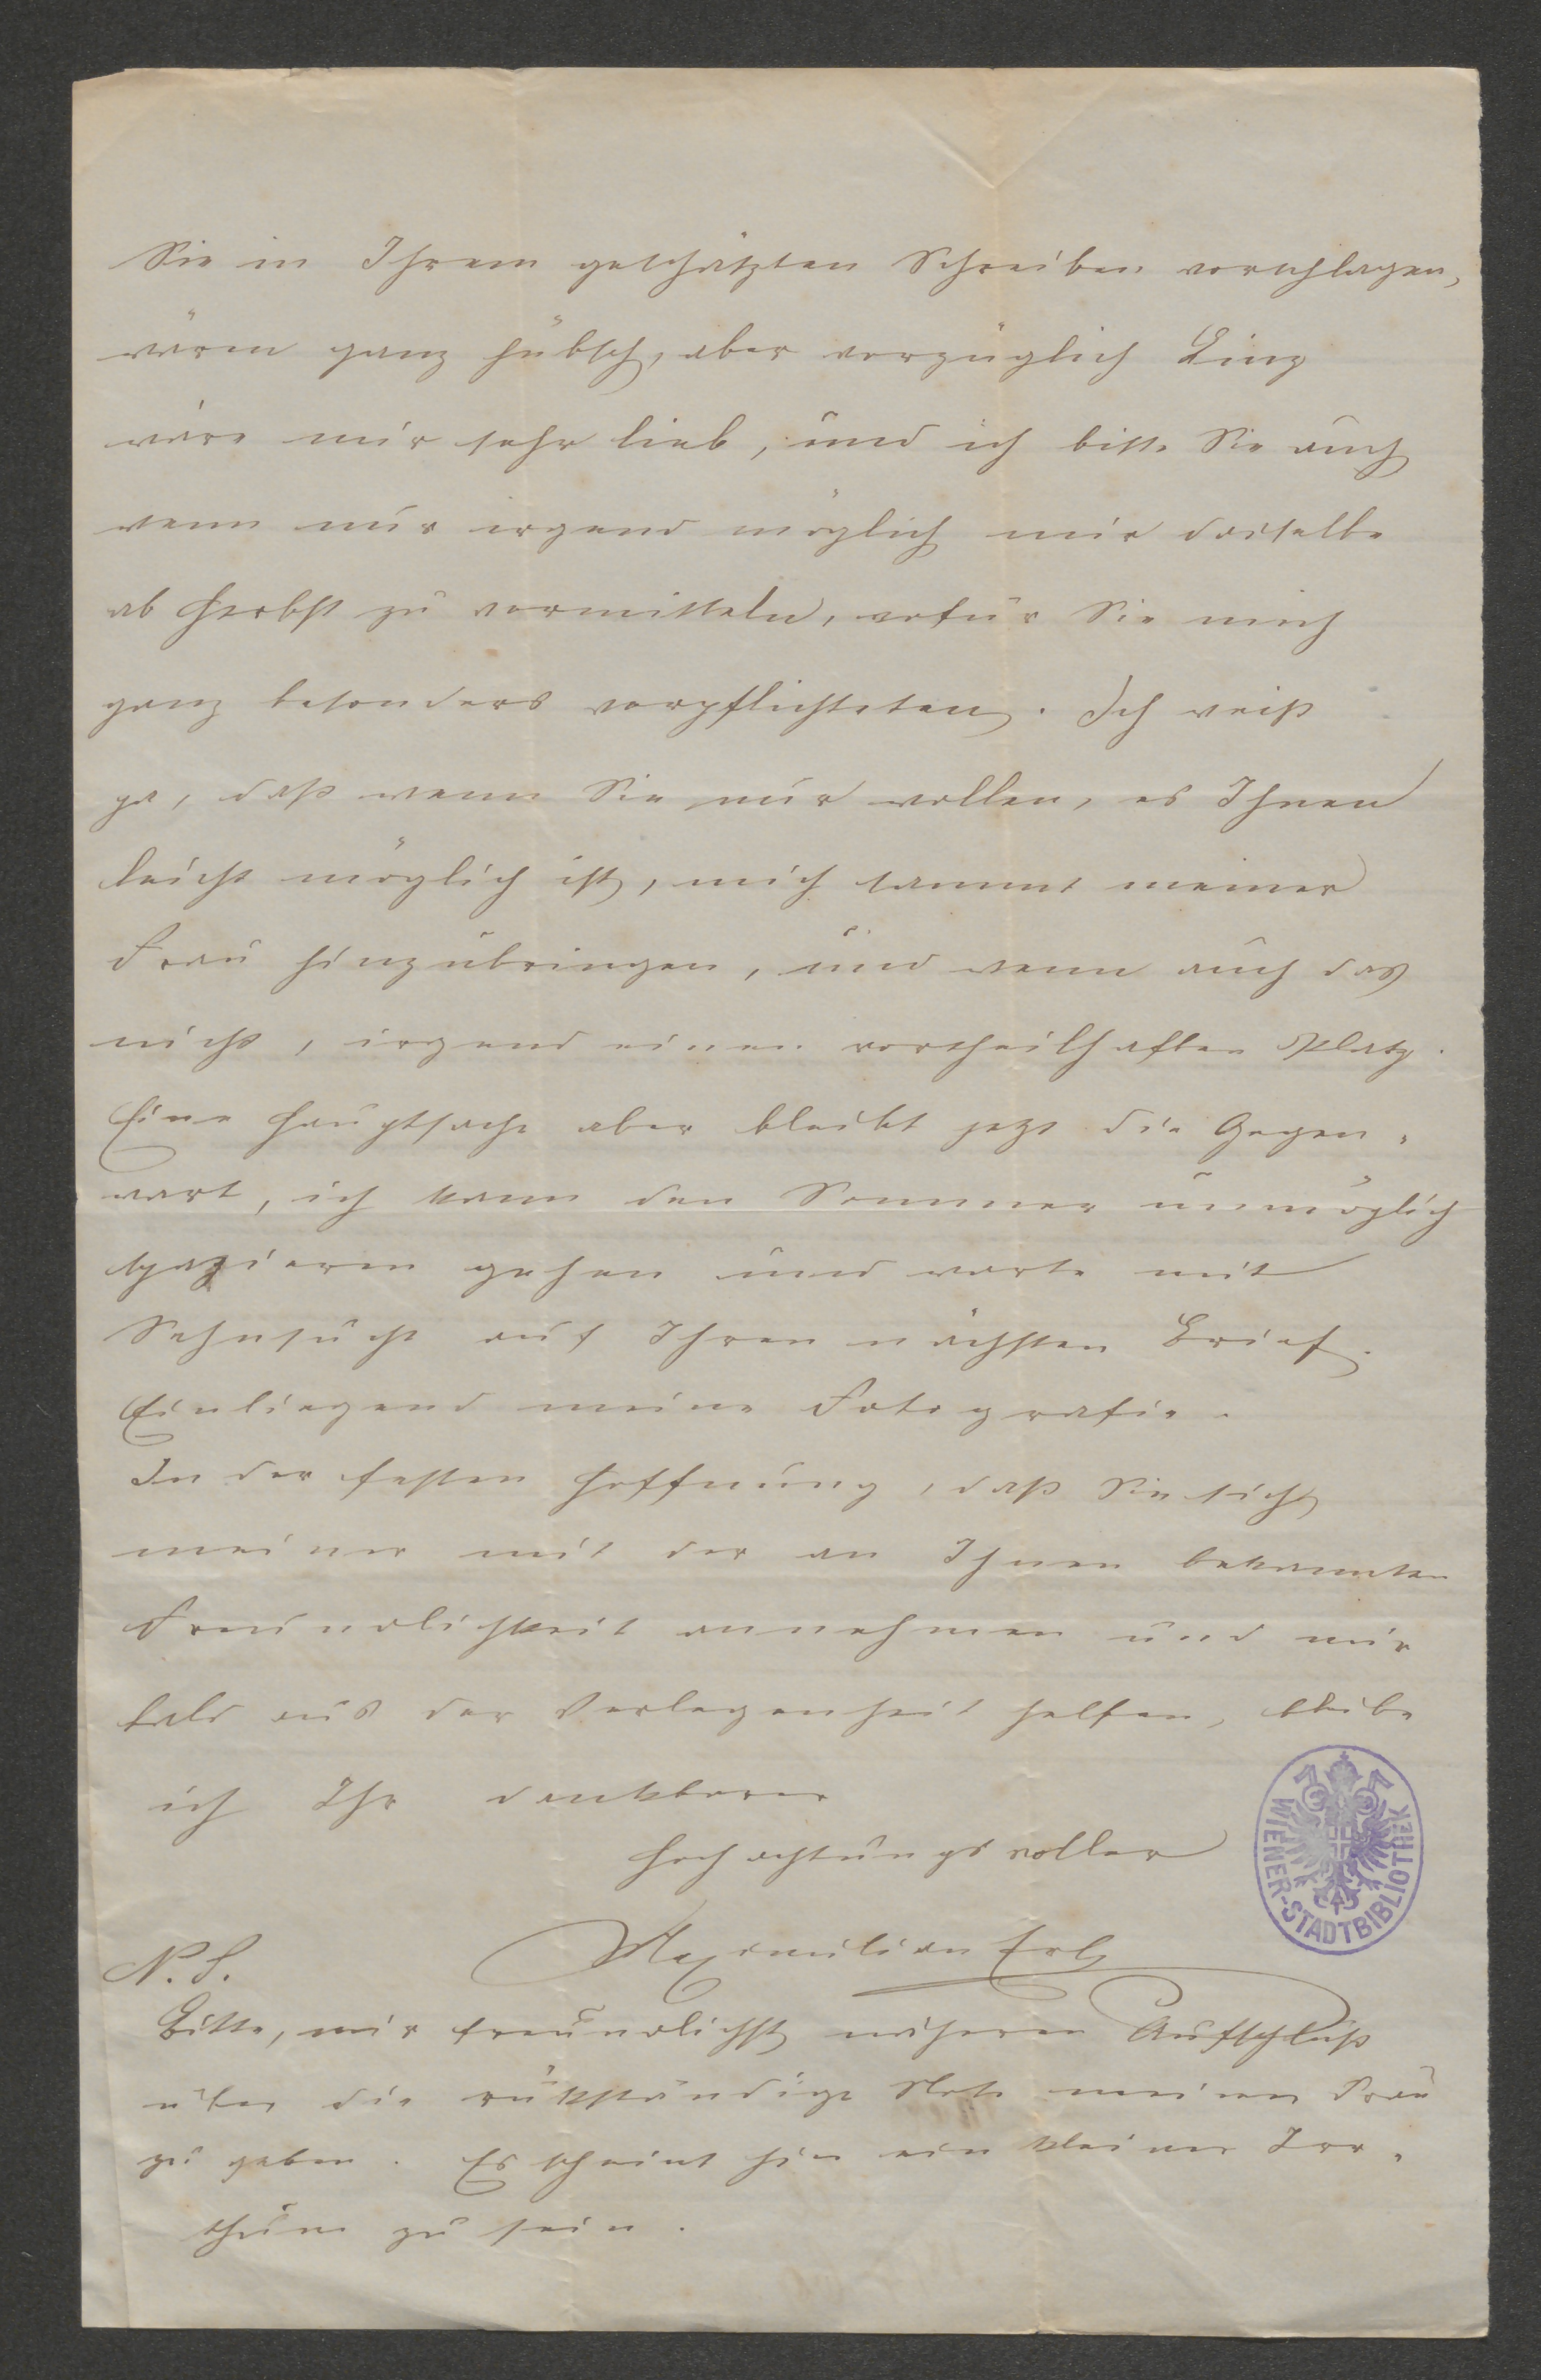 Sie in Ihrem geschätzten Schreiben vorschlagen,
wären ganz hübsch, aber vorzüglich Linz
wäre mir sehr lieb, und ich bitte Sie auch
wenn nur irgend möglich mir dasselbe
ab Herbst zu vermitteln, wofür Sie mich
ganz besonders verpflichteten. Ich weiß
ja, daß wenn Sie nur wollen, es Ihnen
leicht möglich ist, mich sammt meiner
Frau hinzubringen, und wenn auch das
nicht, irgend einen vortheilhaften Platz.
Eine Hauptsache aber bleibt jezt die Gegen-
wart, ich kann den Sommer unmöglich
spazieren gehen und warte mit
Sehnsucht auf Ihren nächsten Brief.
Einliegend meine Fotografie.
In der festen Hoffnung, daß Sie sich
meiner mit der an Ihnen bekannten
Freundlichkeit annehmen und mir
bald aus der Verlegenheit helfen, bleibe
ich Ihr dankbarer
hochachtungsvoller
Maximilian
N. S.
Bitte, mir freundlichst näheren Aufschluß
über die rükständige Note meiner Frau
zu geben. Es scheint hier ein kleiner Irr-
thum zu sein.
WIENER-STADTBIBLIOTHEK